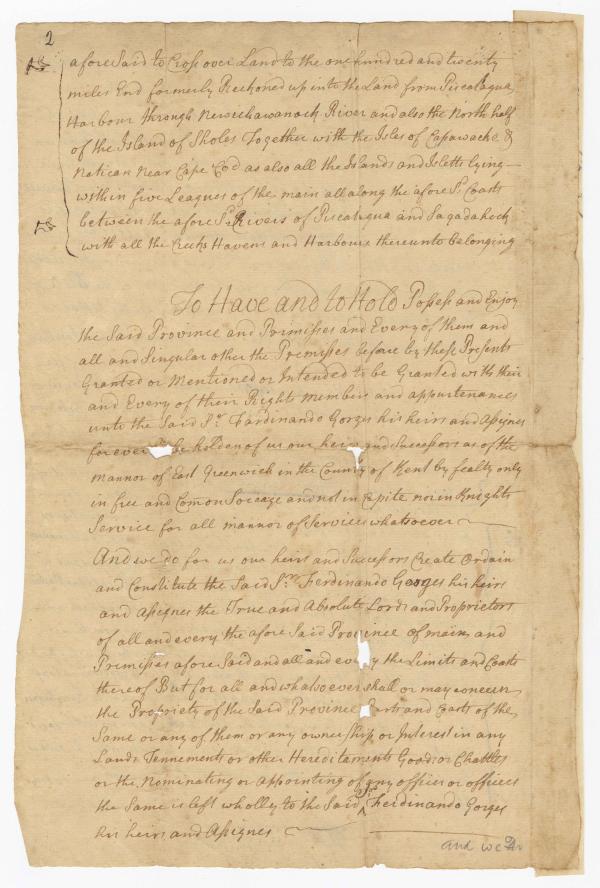 2
afore Said to Cross over Land to the one hundred and twenty
miles End formerly Reckoned up into the Land from Piscataqua
Harbour through Newichawanock River and also the North half
of the Island of Sholes Together with the Isles of Capawack &
Natican Near Cape Cod as also all the Islands and Isletts lying
within five Leagues of the main all along the afore Sd. Coasts
between the afore Sd. Rivers of Piscataqua and Sagadahock
with all the Creeks Havens and Harbours thereunto belonging
To Have and to Hold Possess and Enjoy
the Said Province and Premisses and Every of them and
all and Singular other the Premisses before by these Presents
Granted or Mentioned or Intended to be Granted with their
and Every of their Rights members and appurtenances
unto the Said Sr. Ferdinando Gorges his heirs and Assignes
for ever be holden of us our heirs and Successors as of the
mannor of East Greenwich in the County of Kent by fealty only
in free and Comon Soccage and not in Capite nor in Knights
Service for all mannor of Service whatsoever
And we do for us our heirs and Successors Create Ordain
and Constitute the Said Sr. Ferdinando Georges his heirs
and Assignes the True and Absolute Lords and Proprietors
of all and every the afore Said Province of main and
Premisses afore Said and all and every the Limits and Coasts
thereof But for all and whatsoever shall or may concern
the Propriety of the Said Province Parts and Coasts of the
Same or any of them or any owner Ship or Interest in any
Lands Tennements or other Hereditaments Goods or Chattles
or the Nominating or appointing of any officer or officers
the Same is left wholley to the Said Sr. Ferdinando Gorges
his heirs and Assignes
and we Do